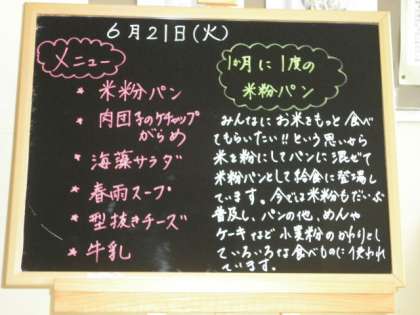 6月21日(火)
メニュー
* 米粉パン
* 肉団子のケチャップ
がらめ
* 海藻サラダ
* 春雨スープ
* 型抜きチーズ
* 牛乳
1か月に1度の
米粉パン
みんなにお米をもっと食べ
てもらいたい!!という思いから
米を粉にしてパンに混ぜて
米粉パンとして給食に登場し
ています。今では米粉もだいぶ
普及し、パンの他、めんや
ケーキなど小麦粉のかわりとし
ていろいろな食べものに使われ
ています。